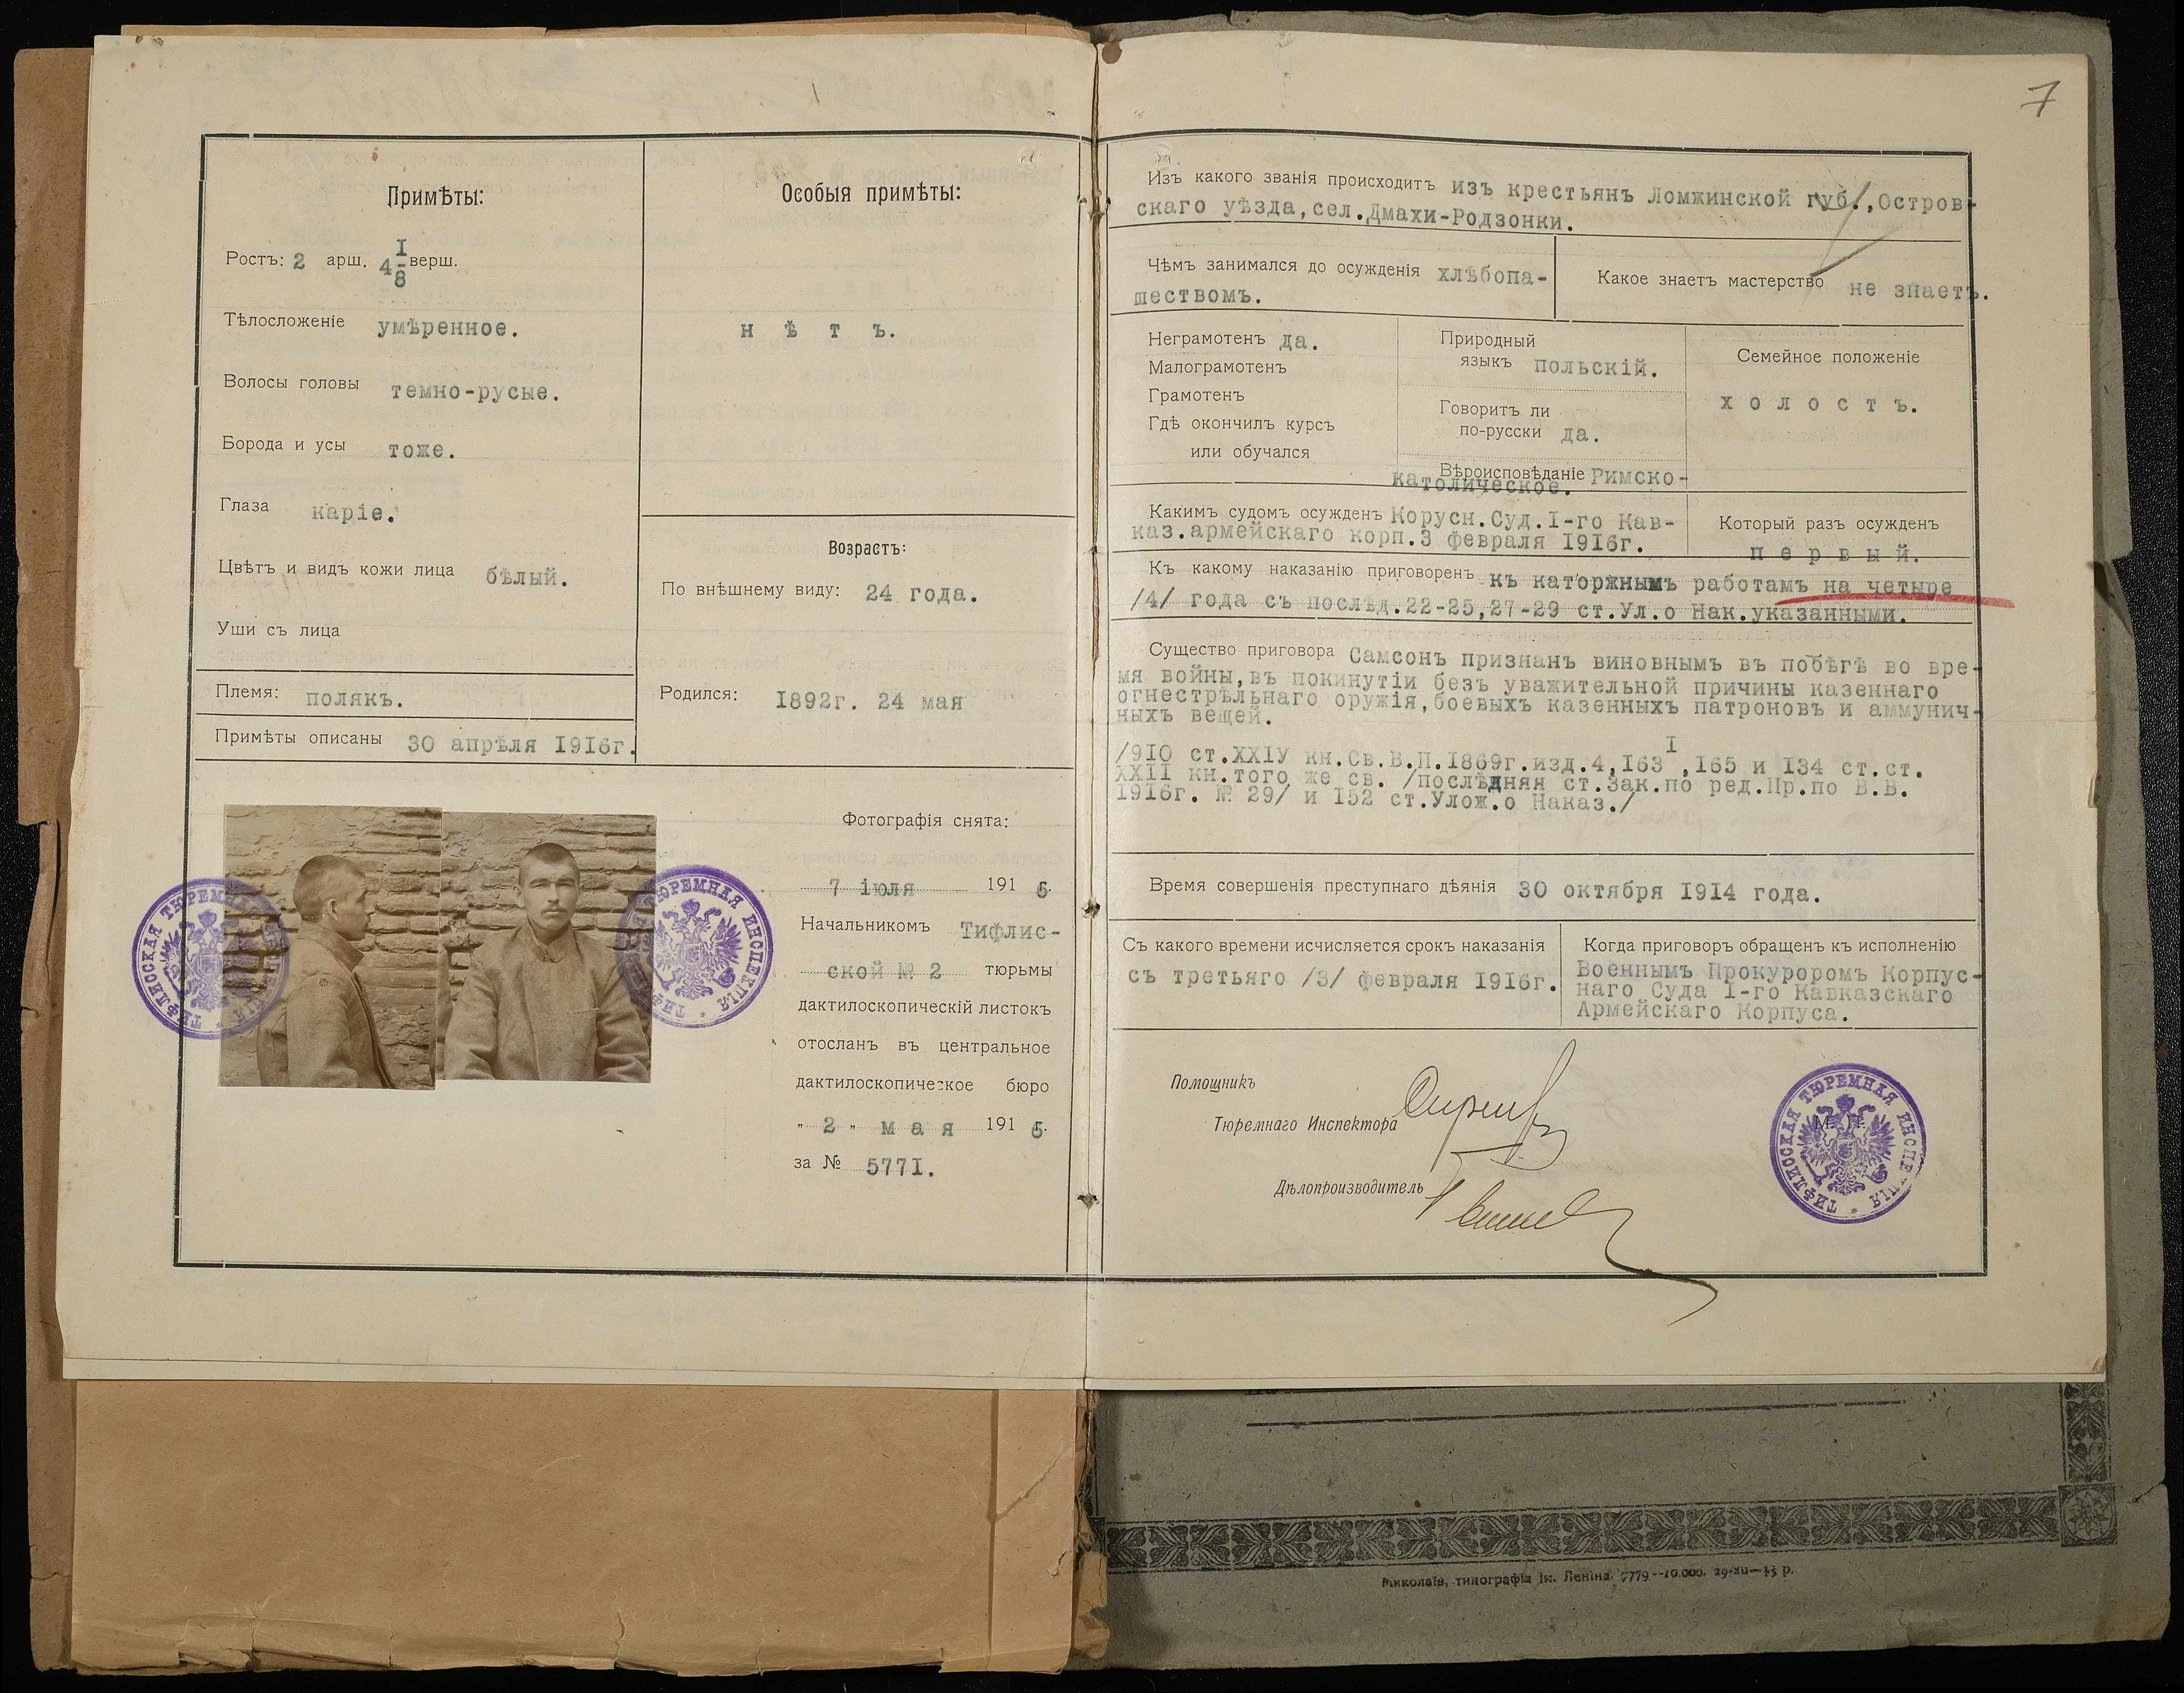 7
Примѣты:
Ростъ: 2 арш. 4 1/8 верш.
Тѣлосложеніе умѣренное.
Волосы головы темно-русые.
Борода и усы тоже.
Глаза каріе.
Цвѣтъ и видъ кожи лица бѣлый.
Уши съ лица
Племя: полякъ.
Примѣты описаны 30 апрѣля 1916г.
Особыя примѣты:
н ѣ т ъ.
Возрастъ:
По внѣшнему виду: 24 года.
Родился: 1892г. 24 мая
Фотографія снята:
7 іюля 1916.
Начальникомъ Тифлис-
ской № 2 тюрьмы
дактилоскопическій листокъ
отосланъ въ центральное
дактилоскопическое бюро
" 2 " м а я 1916.
за № 5771.
ТИФЛИССКАЯ ТЮРЕМНАЯ ИНСПЕКЦІЯ
ТИФЛИССКАЯ ТЮРЕМНАЯ ИНСПЕКЦІЯ
Изъ какого званія происходитъ изъ крестьянъ Ломжинской губ., Остров-
скаго уѣзда, сел. Дмахи-Родзонки.
Чѣмъ занимался до осужденія хлѣбопа-
шествомъ.
Какое знаетъ мастерство не знаетъ.
Неграмотенъ да.
Малограмотенъ
Грамотенъ
Гдѣ окончилъ курсъ
или обучался
Природный
языкъ польскій.
Говоритъ ли
по-русски да.
Вѣроисповѣданіе Римско-
католическое.
Семейное положеніе
х о л о с т ъ.
Какимъ судомъ осужденъ Корусн. Суд. I-го Кав-
каз. армейскаго корп. 3 февраля 1916г.
Который разъ осужденъ
п е р в ы й.
Къ какому наказанію приговоренъ къ каторжнымъ работамъ на четыре
/4/ года съ послѣд. 22-25, 27-29 ст. Ул. о Нак. указанными.
Существо приговора Самсонъ признанъ виновнымъ въ побѣгѣ во вре-
мя войны, въ покинутіи безъ уважительной причины казеннаго
огнестрѣльнаго оружія, боевыхъ казенныхъ патроновъ и аммунич-
ныхъ вещей.
/910 ст. XXIУ кн. Св. В. П. 1869г. изд. 4, 163 I, 165 и 134 ст. ст.
XXII кн. того же св. /послѣдняя ст. Зак. по ред. Пр. по В. В.
1916г. № 29/ и 152 ст. Улож. о Наказ./
Время совершенія преступнаго дѣянія 30 октября 1914 года.
Съ какого времени исчисляется срокъ наказанія
съ третьяго /3/ февраля 1916г.
Когда приговоръ обращенъ къ исполненію
Военнымъ Прокуроромъ Корпус-
наго Суда I-го Кавказскаго
Армейскаго Корпуса.
Помощникъ
Тюремнаго Инспектора
Дѣлопроизводитель
М. П.
ТИФЛИССКАЯ ТЮРЕМНАЯ ИНСПЕКЦІЯ
Миколаїв, типографія ім. Леніна